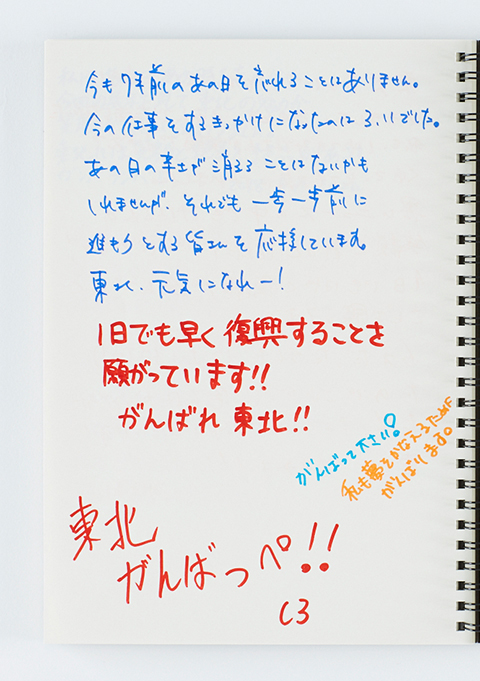 今も7年前のあの日を忘れることはありません。
今の仕事をするきっかけになったのは3.11でした。
あの日の事が消えることはないかも
しれませんが、それでも一歩一歩前に
進もうとする皆さんを応援しています。
東北、元気になれー!
1日でも早く復興することを
願がっています!!
がんばれ 東北!!
がんばって下さい!
私も夢をかなえるため
がんばります。
東北
がんばっぺ!!